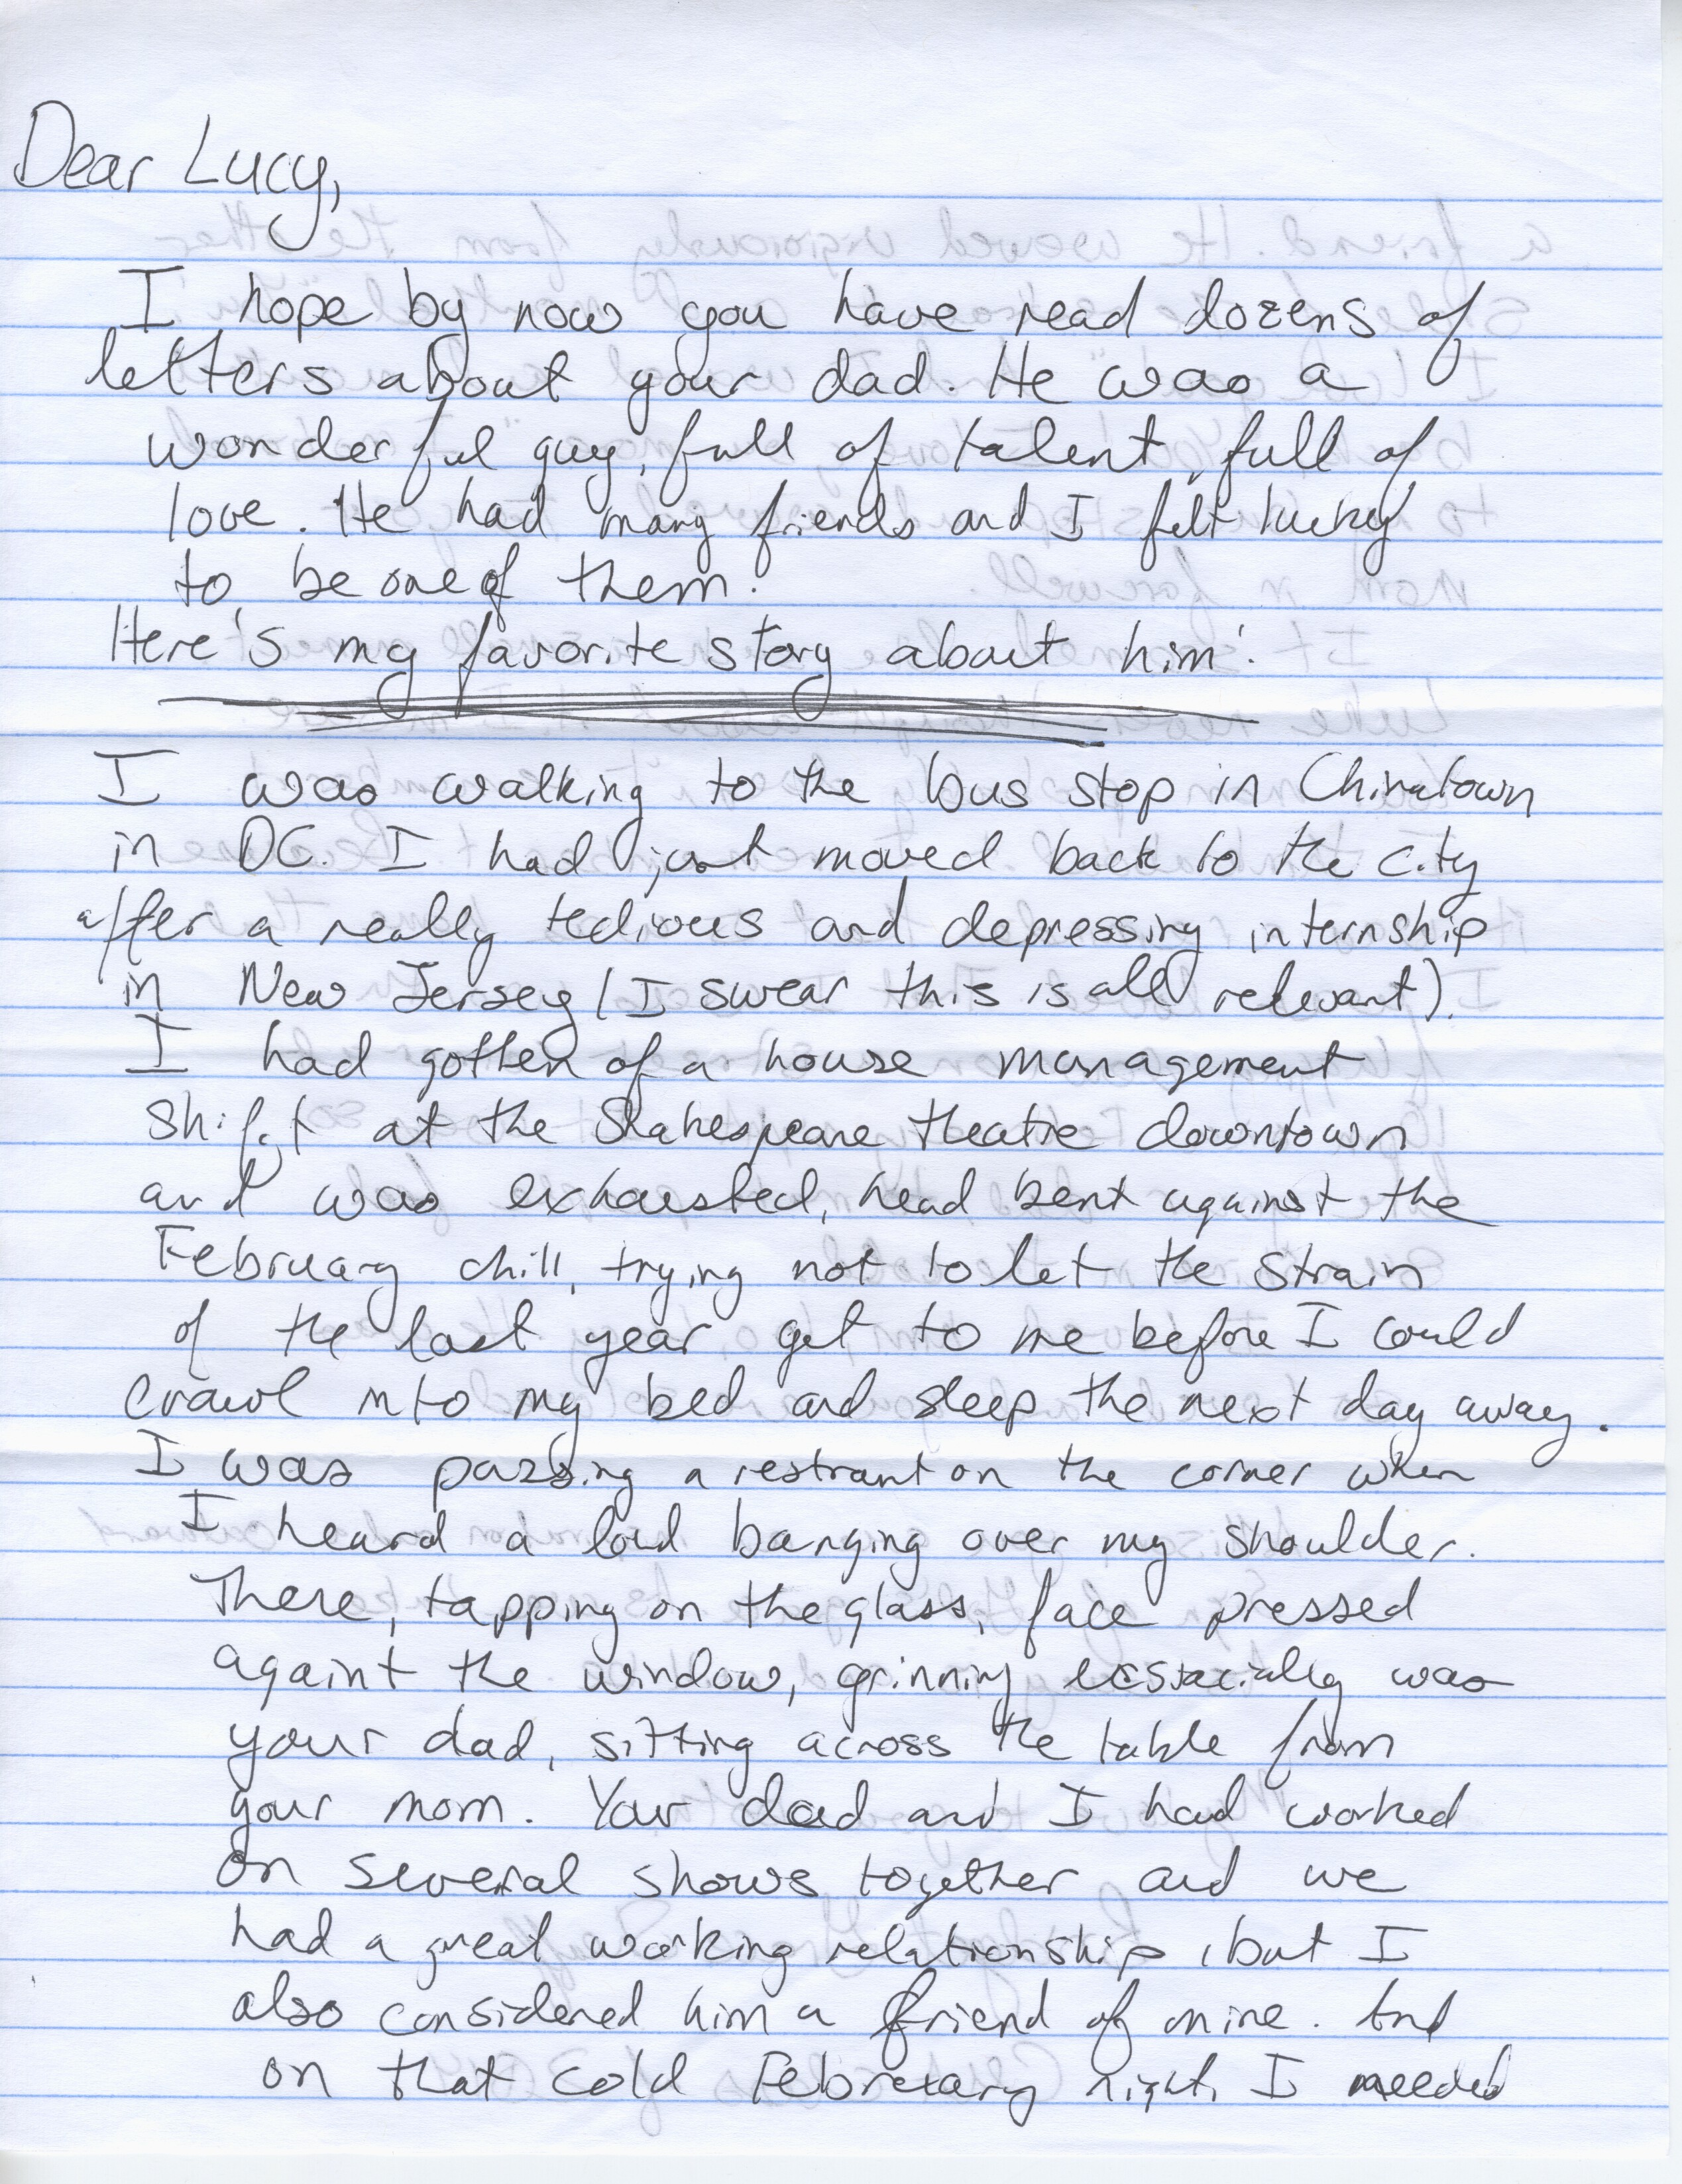 Dear Lucy,
I hope by now you have read dozens of
letters about your dad. He was a
wonderful guy, full of talent, full of
love. He had many friends and I felt lucky
to be one of them.
Here's my favorite story about him:
I was walking to the bus stop in Chinatown
in DC. I had just moved back to the city
after a really tedious and depressing internship
in New Jersey (I swear this is all relevant).
I had gotten of a house management
shift at the Shakespeare theatre downtown
and was exhausted, head bent against the
February chill, trying not to let the strain
of the last year get to me before I could
crawl into my bed and sleep the next day away.
I was passing a restrant on the corner when
I heard a loud banging over my shoulder.
There, tapping on the glass, face pressed
againt the window, grinning was
your dad, sitting across the table from
your mom. Your dad and I had worked
on several shows together and we
had a great working relationship, but I
also considered him a friend of mine. And
on that cold February night, I needed